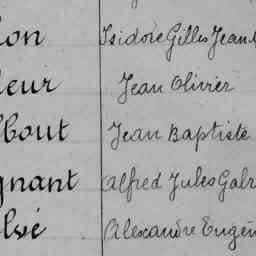 ion Isidore Gilles Jean
leur Jean Olivier
bout Jean Baptiste
gnant Alfred Jules Gabr
lvé Alexandre Eugèn